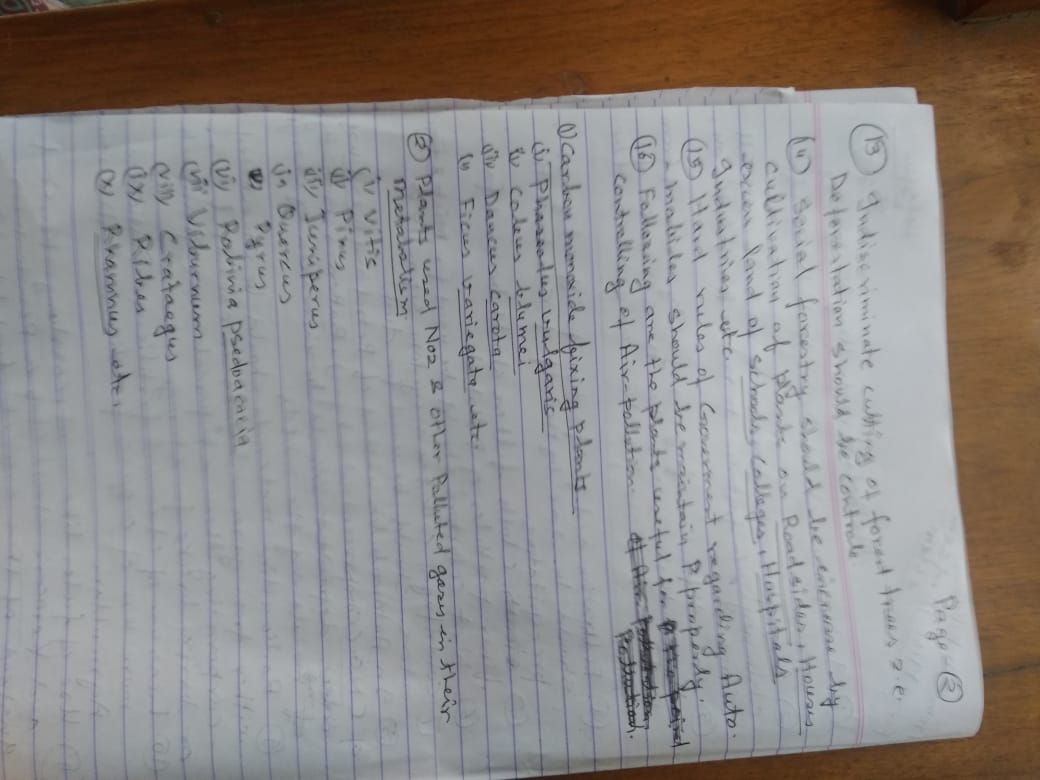 Page-②
(13) Indiscriminate cutting of forest trees i.e.
Deforestation should be controle
(14) Social forestry should be increase by
cultivation of plants on Roadsides, Houses
land of schools, colleges, Hospitals
Industries etc.
(15) Hard rules of Government regarding Auto-
mobiles should be maintain properly.
(16) Following are the plants useful for
controlling of Air pollution.
① Carbon monoxide fixing plants
(i) Phaseolus vulgaris
(ii) Coleus blumei
(iii) Daucus carota
(iv) Ficus variegata etc.
② Plants used NO2 & other Polluted gases in their
metabolism
(i) Vitis
(ii) Pinus
(iii) Juniperus
(iv) Quercus
(v) Pyrus
(vi) Robinia psedoacacia
(vii) Viburnum
(viii) Crataegus
(ix) Ribes
(x) Rhamnus etc.